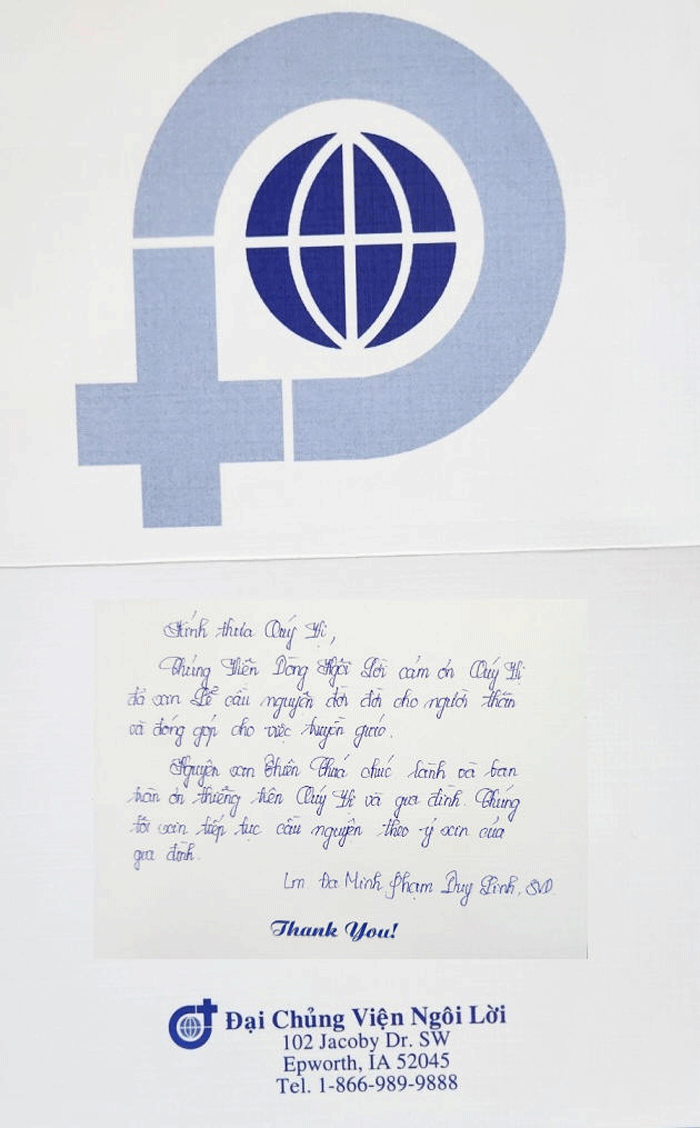 Kính thưa Quý Vị,
Chủng Viện Dòng Ngôi Lời cảm ơn Quý Vị
đã xin Lễ cầu nguyện đời đời cho người thân
và đóng góp cho việc truyền giáo.
Nguyện xin Thiên Chúa chúc lành và ban
tràn ơn thiêng trên Quý Vị và gia đình. Chúng
tôi xin tiếp tục cầu nguyện theo ý xin của
gia đình.
Lm Đa Minh Phạm Duy Linh, SVD.
Thank You!
Đại Chủng Viện Ngôi Lời
102 Jacoby Dr. SW
Epworth, IA 52045
Tel. 1-866-989-9888